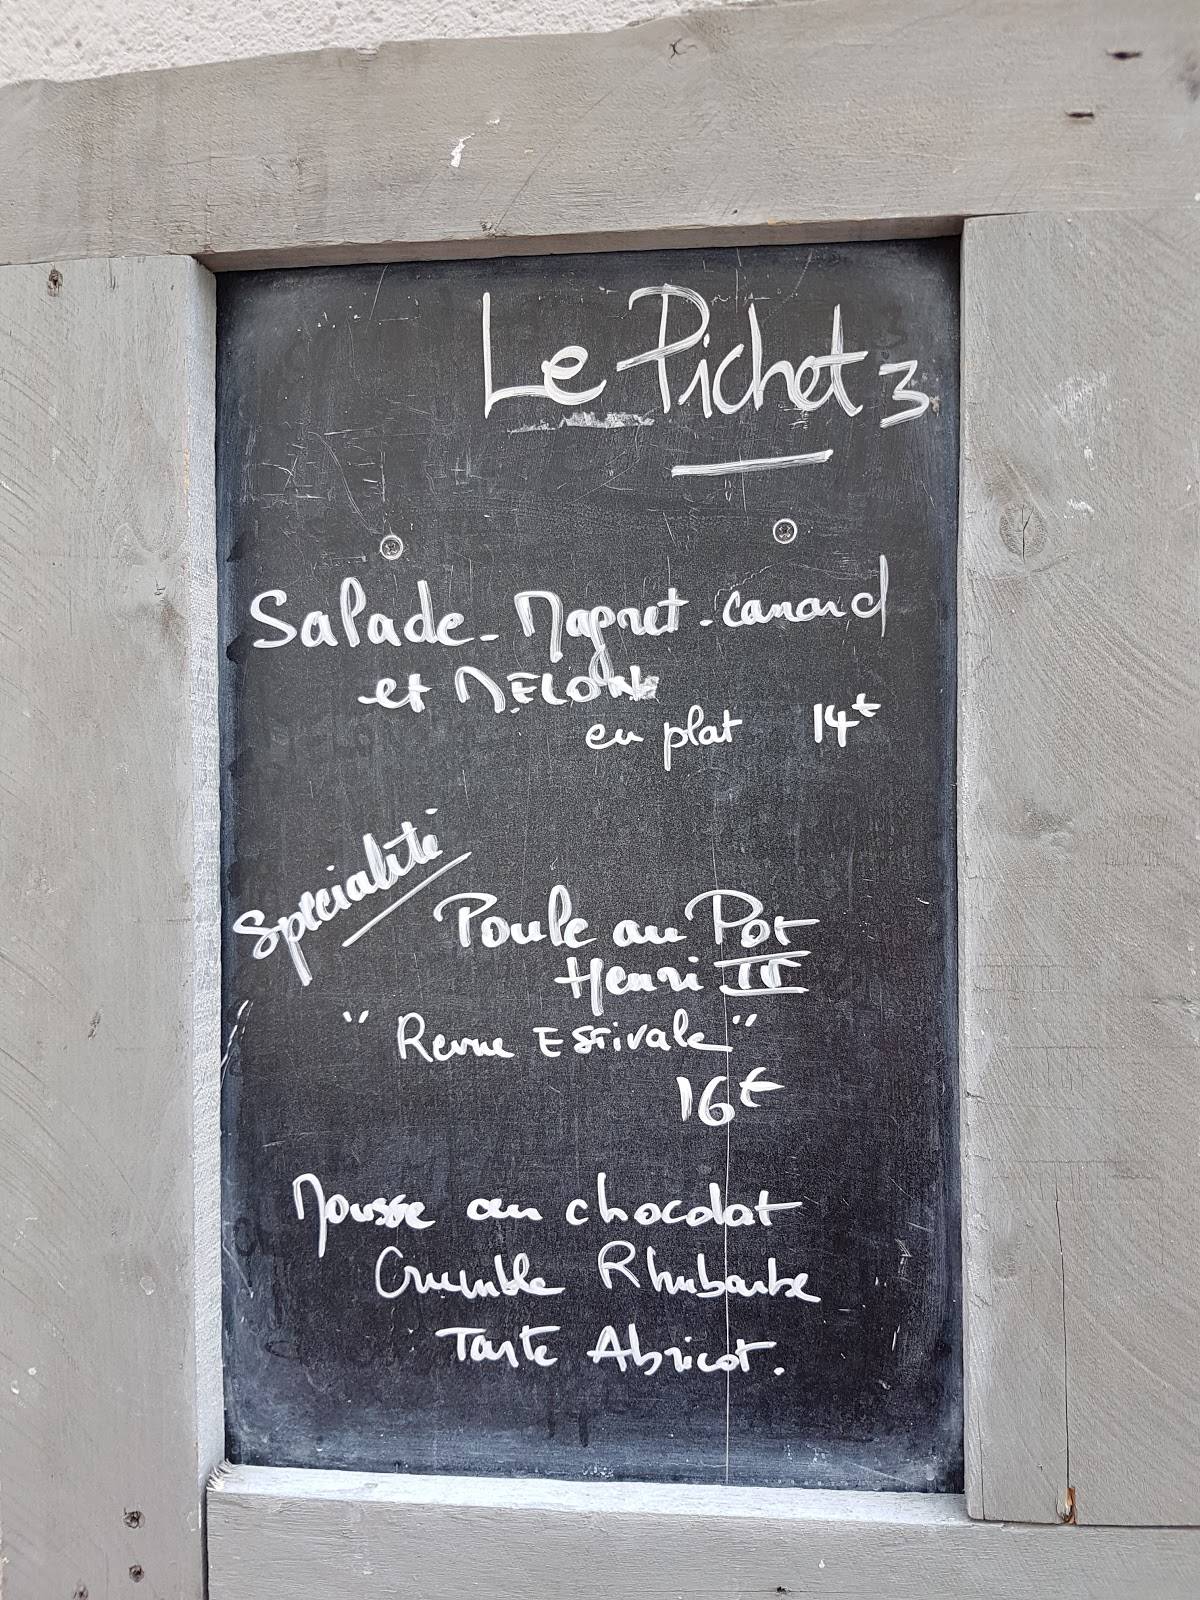 Le Pichet 3
Salade - Magret - canard
et MELON
en plat 14€
Spécialité
Poule au Pot
Henri IV
"Revue Estivale"
16€
Mousse au chocolat
Crumble Rhubarbe
Tarte Abricot.